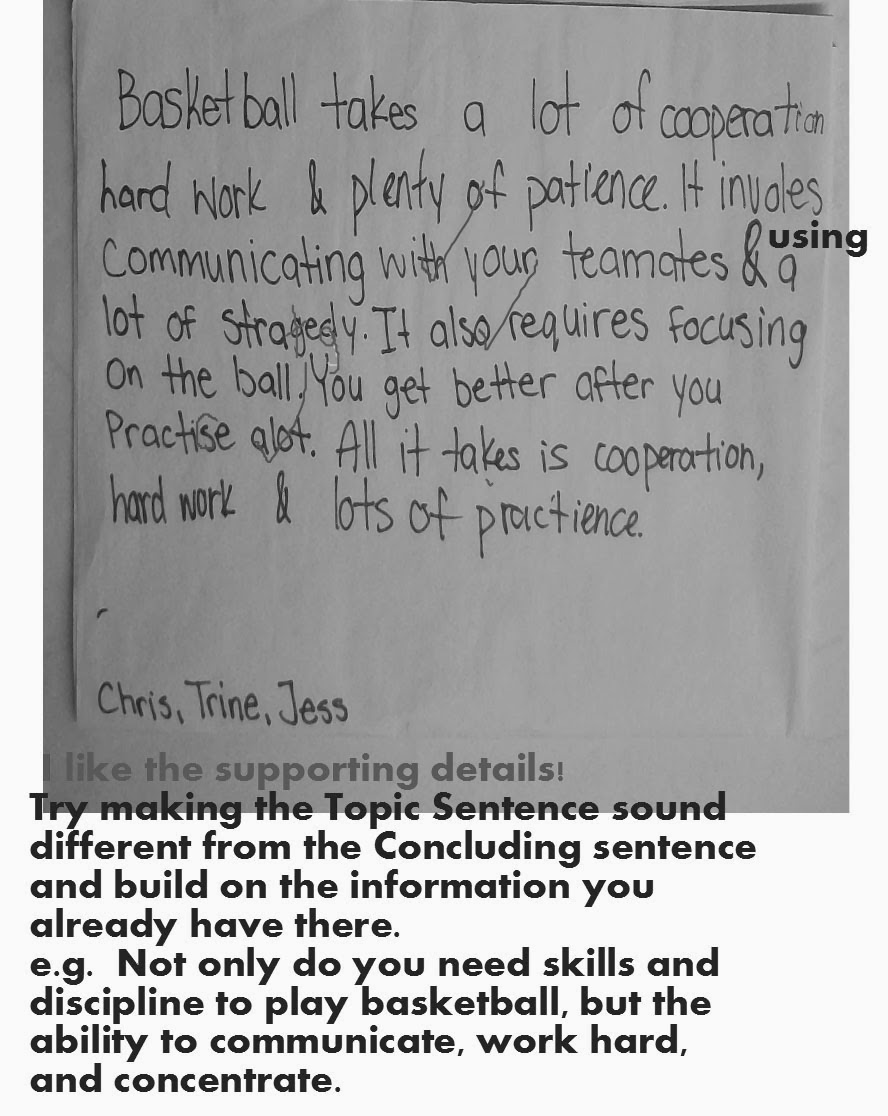 Basketball takes a lot of cooperation
hard work & plenty of patience. It involes
using
Communicating with your teamates & a
lot of stragedy. It also requires focusing
On the ball. You get better after you
Practise alot. All it takes is cooperation,
hard work & lots of practience.
Chris, Trine, Jess
I like the supporting details!
Try making the Topic Sentence sound
different from the Concluding sentence
and build on the information you
already have there.
e.g. Not only do you need skills and
discipline to play basketball, but the
ability to communicate, work hard,
and concentrate.